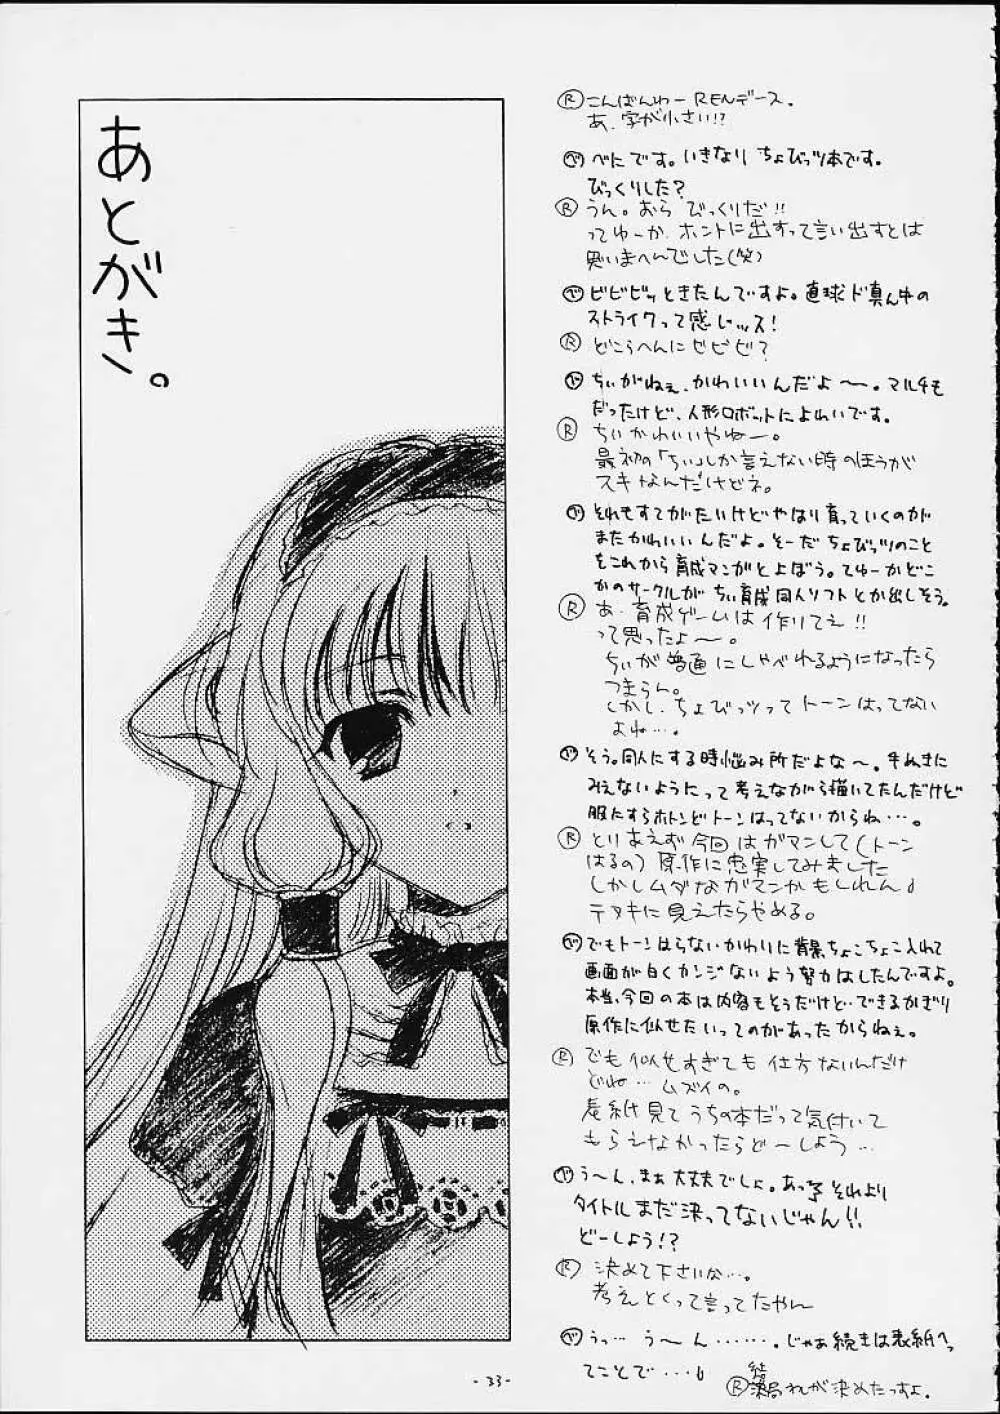 あとがき。
Ⓡ こんばんわー RENデース。
あ、字が小さい!?
べ べにです。いきなり ちょびっツ本です。
びっくりした?
Ⓡ うん。おら びっくりだ!!
ってゆーか、ホントに出すって言い出すとは
思いまへんでした(笑)
べ ビビビッときたんですよ。直球ド真ん中の
ストライクって感じッス!
Ⓡ どこらへんにビビビ?
べ ちぃがねぇ、かわいいんだよ〜〜。マルチも
だったけど、人形ロボットによわいです。
Ⓡ ちぃかわいいやねー。
最初の「ちぃ」しか言えない時のほうが
スキなんだけどネ。
べ それもすてがたいけどやはり育っていくのが
またかわいいんだよ。そーだ ちょびっツのこと
をこれから育成マンガとよぼう。てゆーかどこ
かのサークルが ちぃ育成同人ソフトとか出しそう。
Ⓡ あ、育成ゲームは作りてえ!!
って思ったよ〜〜。
ちぃが普通にしゃべれるようになったら
つまらん。
しかし、ちょびっツって トーンはってない
よね…。
べ そう。同人にする時悩み所だよな〜。手ぬきに
みえないようにって考えながら描いてたんだけど
服にすらホトンどトーンはってないからね…。
Ⓡ とりあえず今回はガマンして(トーン
はるの)原作に忠実してみました
しかしムダなガマンかもしれん♪
テヌキに見えたらやめる。
べ でもトーンはらないかわりに背景ちょこちょこ入れて
画面が白くカンジないよう努力はしたんですよ。
本当、今回の本は内容もそうだけど…できるかぎり
原作に似せたいってのがあったからねぇ。
Ⓡ でも似せすぎても仕方ないんだけ
どね… ムズイの。
表紙見てうちの本だって気付いて
もらえなかったらどーしよう…
べ う〜ん、まぁ大丈夫でしょ。あっそれより
タイトルまだ決ってないじゃん!!
どーしよう!?
Ⓡ 決めて下さいな…。
考えとくって言ってたやん
べ うっ… う〜ん……。じゃあ続きは表紙へっ
てことで…
Ⓡ 結局われが決めたっすよ。
-33-